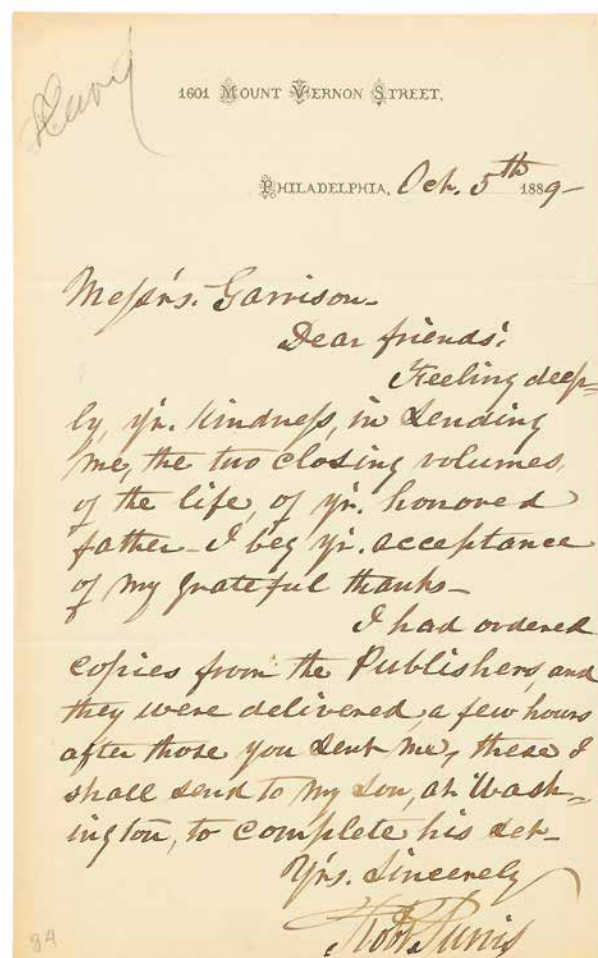 1601 MOUNT VERNON STREET,
PHILADELPHIA, Oct. 5th 1889-
Messrs. Garrison-
Dear friends;
Feeling deep=
ly, yr. kindness, in sending
me, the two closing volumes,
of the life, of yr. honored
father- I beg yr. acceptance
of my grateful thanks-
I had ordered
copies from the Publishers, and
they were delivered a few hours
after those you sent me, these I
shall send to my son, at Wash=
ington, to complete his set-
Yrs. Sincerely
Robt Purvis
84